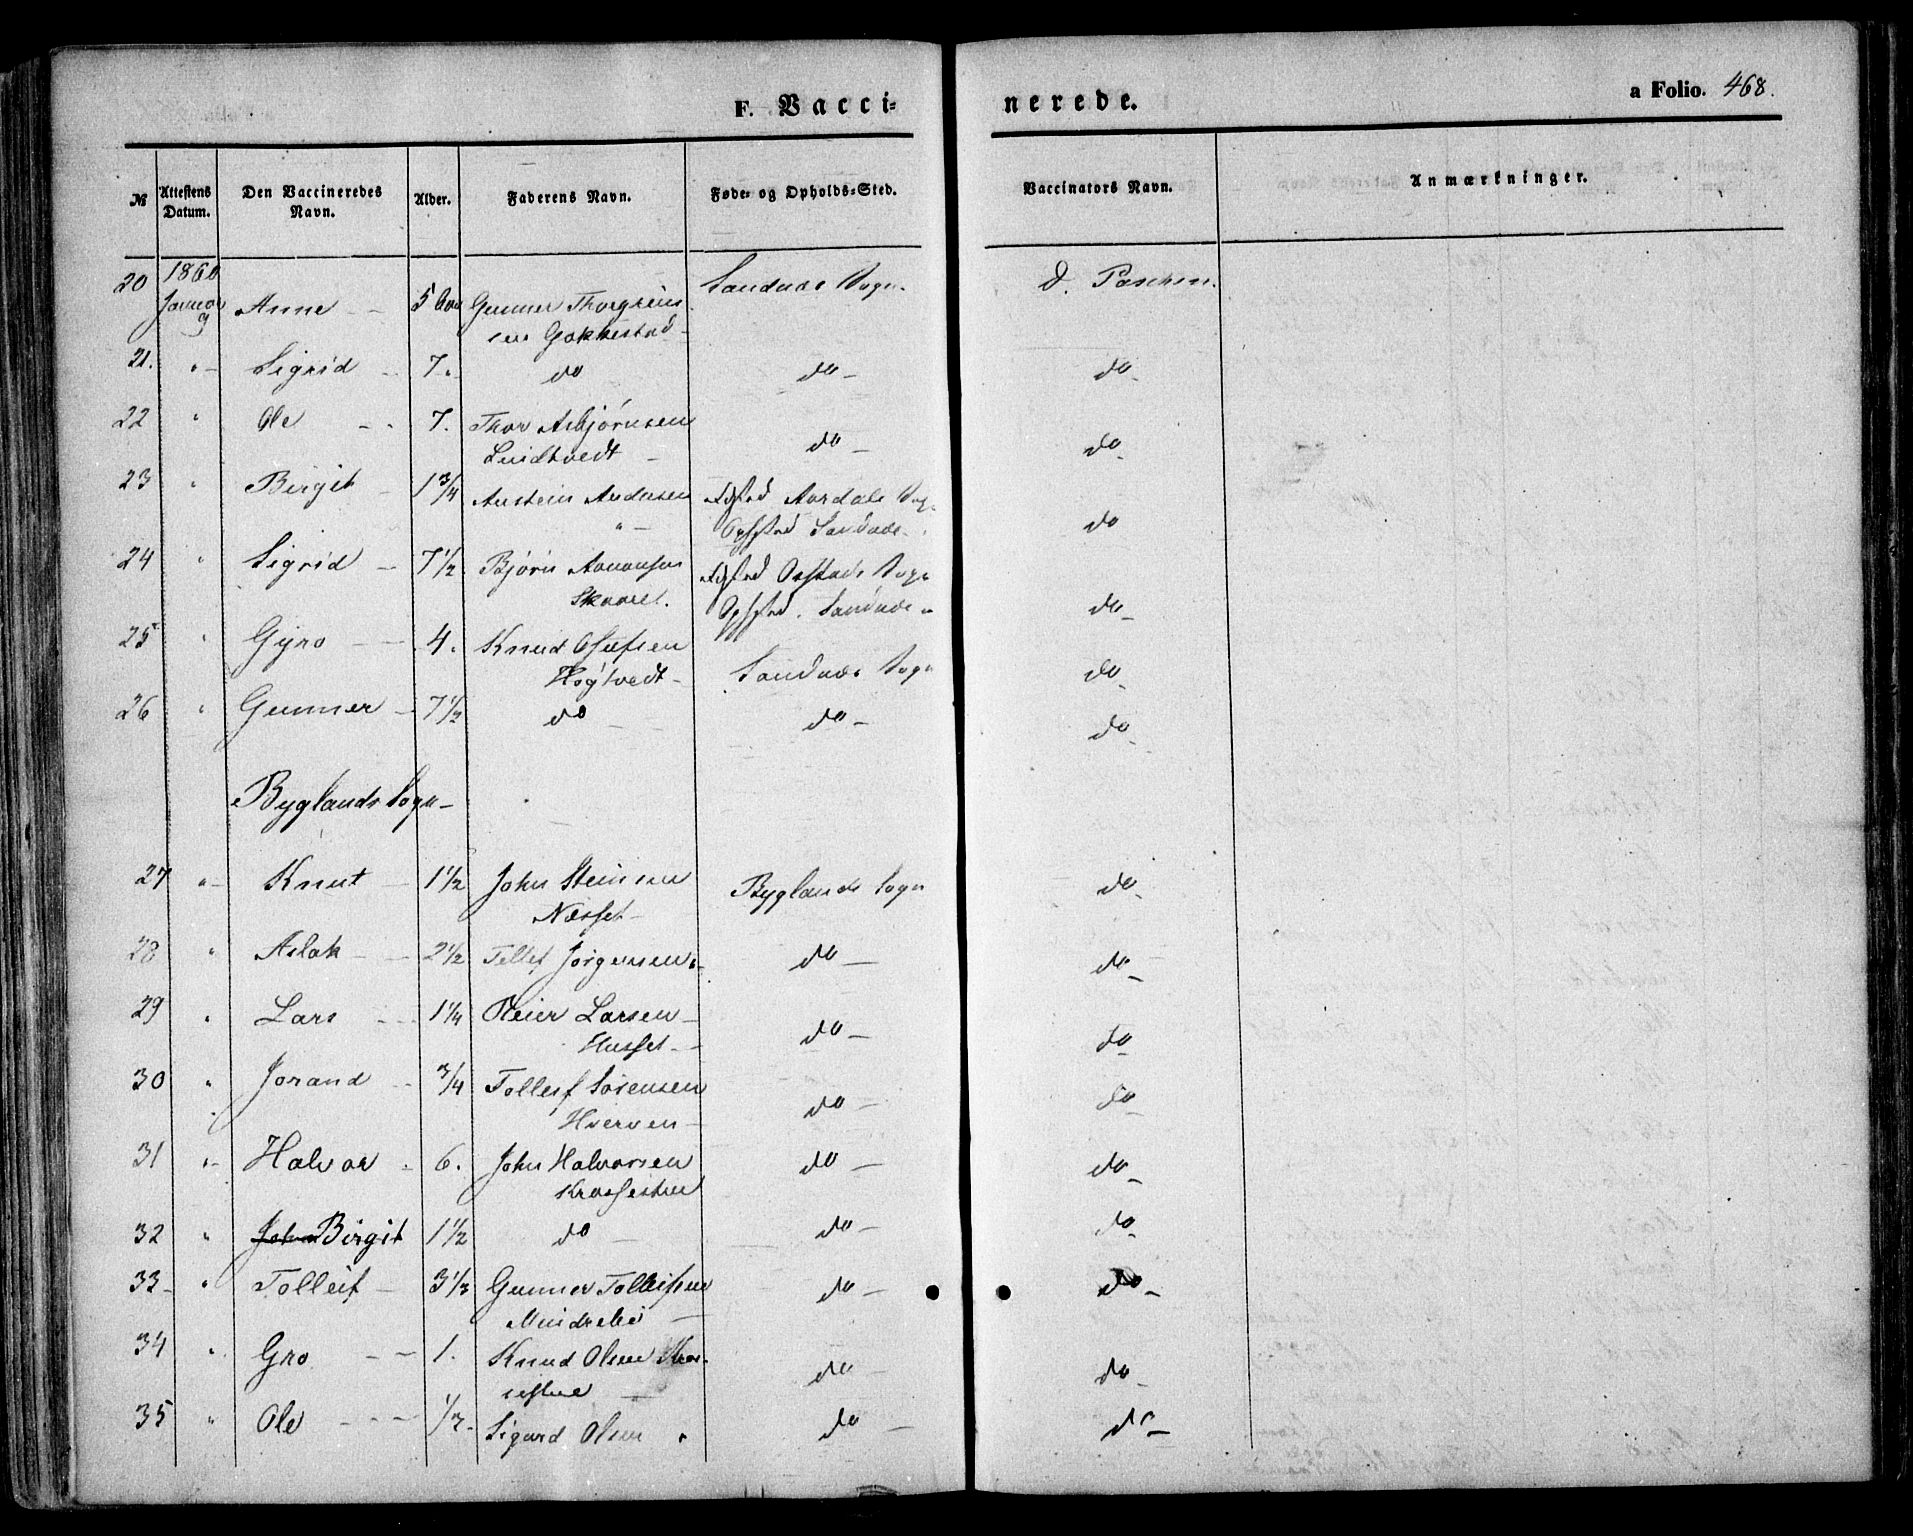 F. Vacci= nerede. a Folio. 468.
№ Attestens Datum. Den Vaccineredes Navn. Alder. Faderens Navn. Føde- og Opholds-Sted. Vaccinators Navn. Anmærkninger.
20 1860 Januar 9 Anne 5 Gunner Sandnæs Sogn. D. Paschen.
21. " Sigrid 7. do do do
22 " Ole 7. Thor Asbjørnsen do do
23 " Birgit 1 3/4 Austein Andersen Fdsted Aardals Sogn
" Opfsted Sandnæs do
24 " Sigrid 7 1/2 Bjørn Aanonsen Fdsted Sogn
Skaaret. Opfsted. Sandnæs do
25 " Gyro 4. Knud Olufsen
Høgtvedt Sandnæs Sogn do
26 " Gunner 7 1/2 do do do
Byglands Sogn
27 " Knut 1 1/2 John Steinsen Byglands Sogn do
Næsset
28 " Aslak 2 1/2 Tellef Jørgensen do do
29 " Lars 1 1/4 Reier Larsen do do
30 " Jorand 3/4 Tolleif Sørensen do do
Hverven
31 " Halvor 6. John Halvorsen do do
32 " John Birgit 1 1/2 do do do
33 " Tolleif 3 1/2 Gunner Tolleifsen do do
34 " Gro 1. Knud Olsen do do
35 " Ole 1/2 Sigurd Olsen " do do